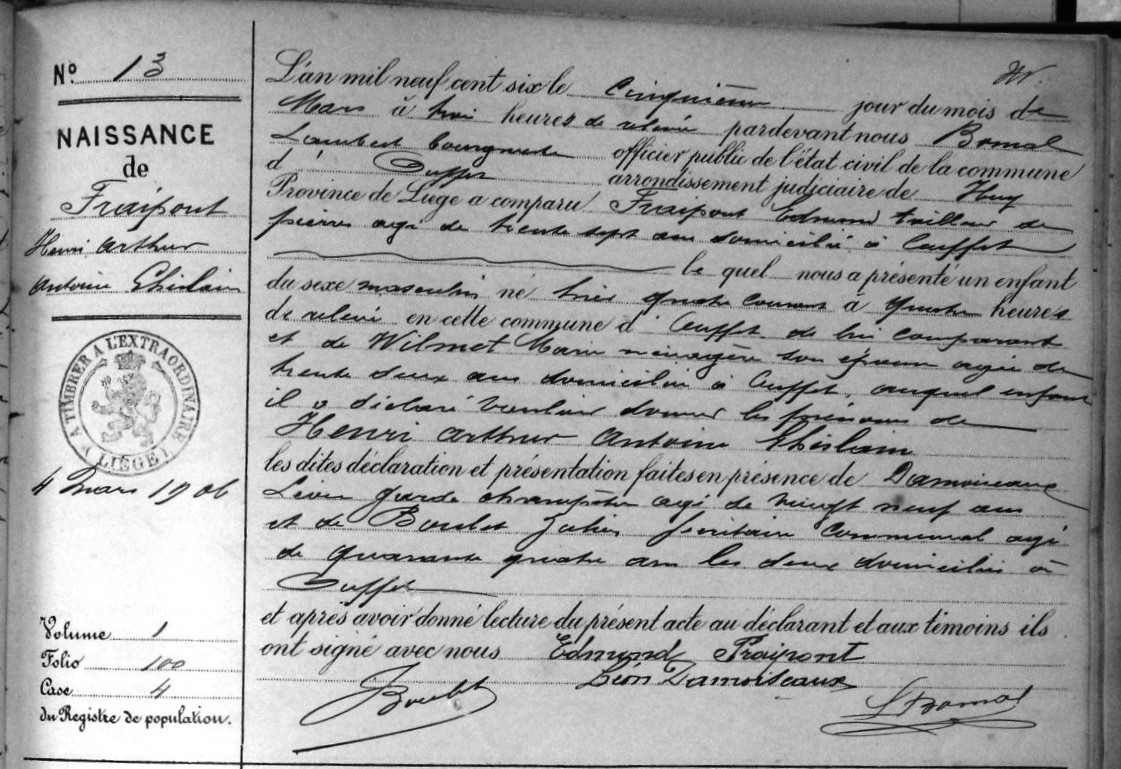 N° 13
NAISSANCE
de
Fraipont
Henri Arthur
Antoine Ghislain
A TIMBRER A L'EXTRAORDINAIRE
(LIÈGE)
4 mars 1906
Volume 1
Folio 100
Case 4
du Registre de population.
L'an mil neuf cent six le cinquième jour du mois de
Mars à trois heures de relevée pardevant nous Bomal
Lambert bourgmestre officier public de l'état civil de la commune
d' Ouffet arrondissement judiciaire de Huy
Province de Liège a comparu Fraipont Edmond tailleur de
pierres agé de trente sept ans domicilié à Ouffet
le quel nous a présenté un enfant
du sexe masculin né hier quatre courant à quatre heures
de relevée en cette commune d' Ouffet de lui comparant
et de Wilmet Marie ménagère son épouse agée de
trente deux ans domiciliée à Ouffet, auquel enfant
il a déclaré vouloir donner les prénoms de
Henri Arthur Antoine Ghislain
les dites déclaration et présentation faites en présence de Damoiseaux
Léon garde champêtre agé de vingt neuf ans
et de Boulet Julien secrétaire communal agé
de quarante quatre ans les deux domiciliés à
Ouffet
et après avoir donné lecture du présent acte au déclarant et aux témoins ils
ont signé avec nous Edmond Fraipont
Léon Damoiseaux
J Boulet
L Bomal